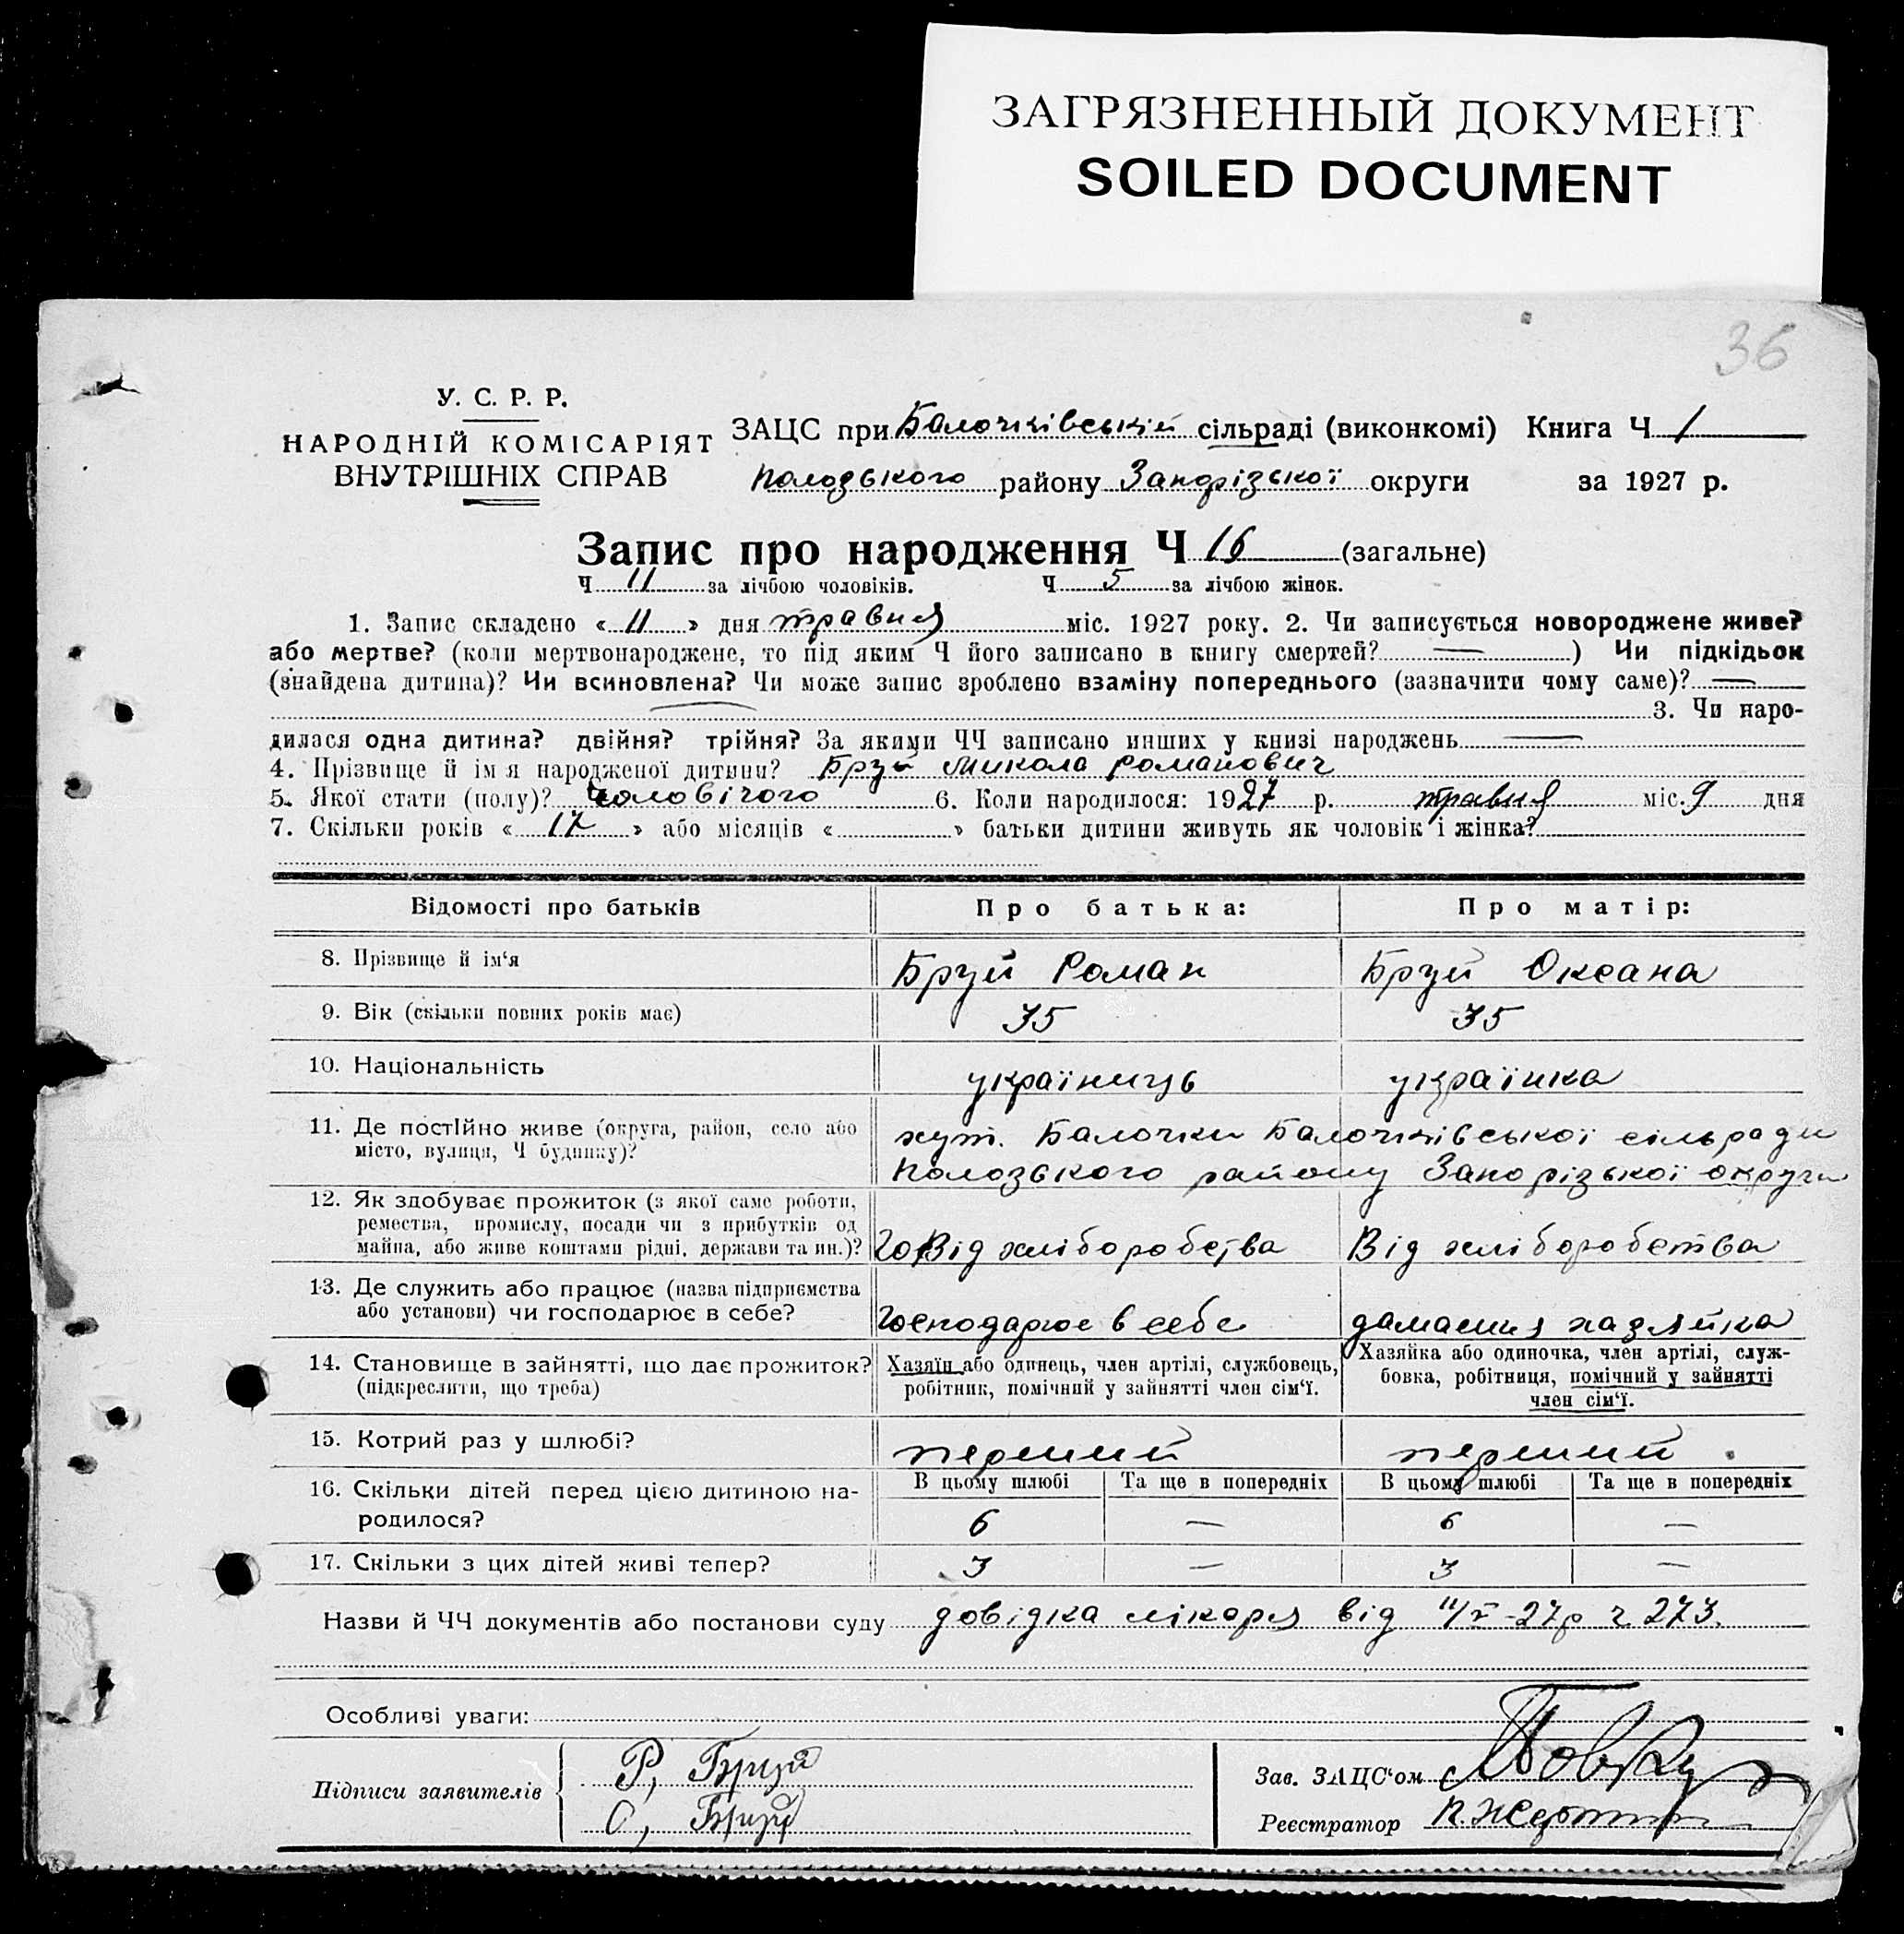 ЗАГРЯЗНЕННЫЙ ДОКУМЕНТ
SOILED DOCUMENT
36
У. С. Р. Р.
НАРОДНІЙ КОМІСАРІЯТ
ВНУТРІШНІХ СПРАВ
ЗАЦС при Балочківській сільраді (виконкомі) Книга Ч 1
Пологського району Запорізької округи за 1927 р.
Запис про народження Ч 16 (загальне)
Ч 11 за лічбою чоловіків. Ч 5 за лічбою жінок.
1. Запис складено « 11 » дня травня міс. 1927 року. 2. Чи записується новороджене живе?
або мертве? (коли мертвонароджене, то під яким Ч його записано в книгу смертей? — ) Чи підкідьок
(знайдена дитина)? Чи всиновлена? Чи може запис зроблено взаміну попереднього (зазначити чому саме)? —
3. Чи наро-
дилася одна дитина? двійня? трійня? За якими ЧЧ записано инших у книзі народжень —
4. Прізвище й ім'я народженої дитини? Бруй Микола Романович
5. Якої стати (полу)? чоловічого 6. Коли народилося: 1927 р. травня міс. 9 дня
7. Скільки років « 17 » або місяців « » батьки дитини живуть як чоловік і жінка?
Відомості про батьків Про батька: Про матір:
8. Прізвище й ім'я Бруй Роман Бруй Оксана
9. Вік (скільки повних років має) 35 35
10. Національність українець українка
11. Де постійно живе (округа, район, село або
місто, вулиця, Ч будинку)?
хут. Балочки Балочківської сільради
Полозького району Запорізької округи
12. Як здобуває прожиток (з якої саме роботи,
ремества, промислу, посади чи з прибутків од
майна, або живе коштами рідні, держави та ин.)? Від хліборобства Від хліборобства
13. Де служить або працює (назва підприємства
або установи) чи господарює в себе? Господарює в себе дамашня хазяйка
14. Становище в зайнятті, що дає прожиток?
(підкреслити, що треба)
Хазяїн або одинець, член артілі, службовець,
робітник, помічний у зайнятті член сім'ї.
Хазяйка або одиночка, член артілі, служ-
бовка, робітниця, помічний у зайнятті
член сім'ї.
15. Котрий раз у шлюбі? перший перший
16. Скільки дітей перед цією дитиною на-
родилося?
В цьому шлюбі Та ще в попередніх В цьому шлюбі Та ще в попередніх
6 — 6 —
17. Скільки з цих дітей живі тепер? 3 — 3 —
Назви й ЧЧ документів або постанови суду довідка лікаря від 11/V-27р ч 273.
Особливі уваги:
Підписи заявителів
Р, Бруй
О, Бруй
Зав. ЗАЦС'ом
Реєстратор